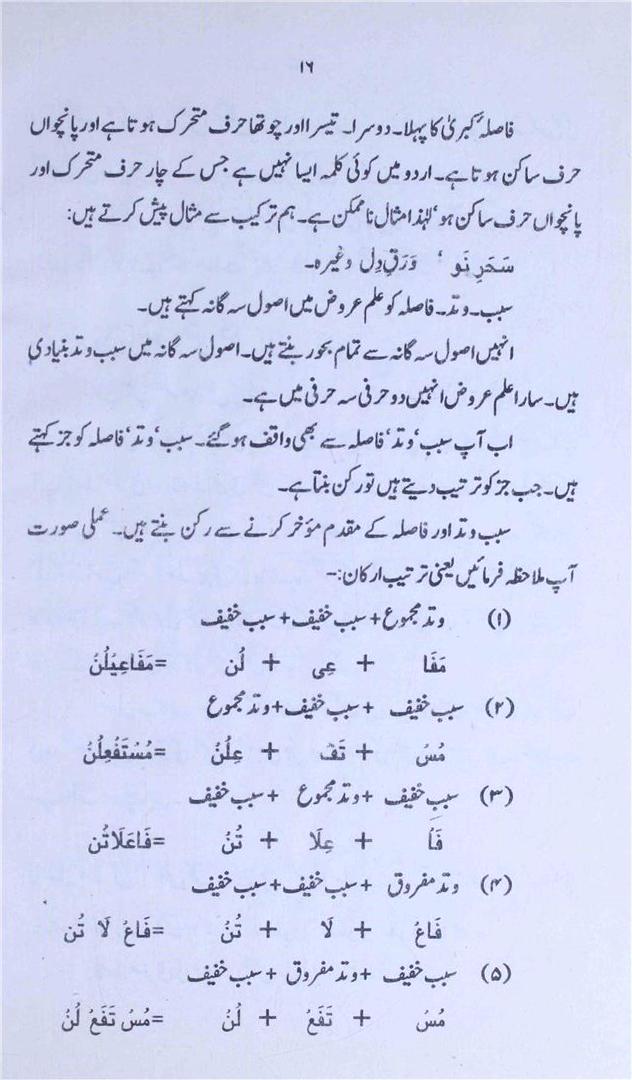 ۱۶
فاصلۂ کبریٰ کا پہلا۔ دوسرا۔ تیسرا اور چوتھا حرف متحرک ہوتا ہے اور پانچواں
حرف ساکن ہوتا ہے۔ اردو میں کوئی کلمہ ایسا نہیں ہے جس کے چار حرف متحرک اور
پانچواں حرف ساکن ہو‘ لہٰذا مثال ناممکن ہے۔ ہم ترکیب سے مثال پیش کرتے ہیں:
سَحَرِنَو ‘ وَرَقِ دِل وغیرہ۔
سبب۔ وتد۔ فاصلہ کو علم عروض میں اصول سہ گانہ کہتے ہیں۔
انہیں اصول سہ گانہ سے تمام بحور بنتے ہیں۔ اصول سہ گانہ میں سبب وتد بنیادی
ہیں۔ سارا علم عروض انہیں دو حرفی سہ حرفی میں ہے۔
اب آپ سبب‘ وتد‘ فاصلہ سے بھی واقف ہو گئے۔ سبب‘ وتد‘ فاصلہ کو جز کہتے
ہیں۔ جب جز کو ترتیب دیتے ہیں تو رکن بنتا ہے۔
سبب وتد اور فاصلہ کے مقدم مؤخر کرنے سے رکن بنتے ہیں۔ عملی صورت
آپ ملاحظہ فرمائیں یعنی ترتیب ارکان:-
(۱) وتد مجموع + سبب خفیف + سبب خفیف
مَفَا + عِی + لُن =مَفَاعِیْلُنْ
(۲) سبب خفیف + سبب خفیف + وتد مجموع
مُسْ + تَفْ + عِلُنْ =مُسْتَفْعِلُنْ
(۳) سبب خفیف + وتد مجموع + سبب خفیف
فَاْ + عِلَا + تُنْ =فَاعَلَاتُن
(۴) وتد مفروق + سبب خفیف + سبب خفیف
فَاعُ + لَا + تُنْ =فَاعُ لَا تُن
(۵) سبب خفیف + وتد مفروق + سبب خفیف
مُسْ + تَفَعُ + لُنْ =مُسْ تَفَعُ لُنْ